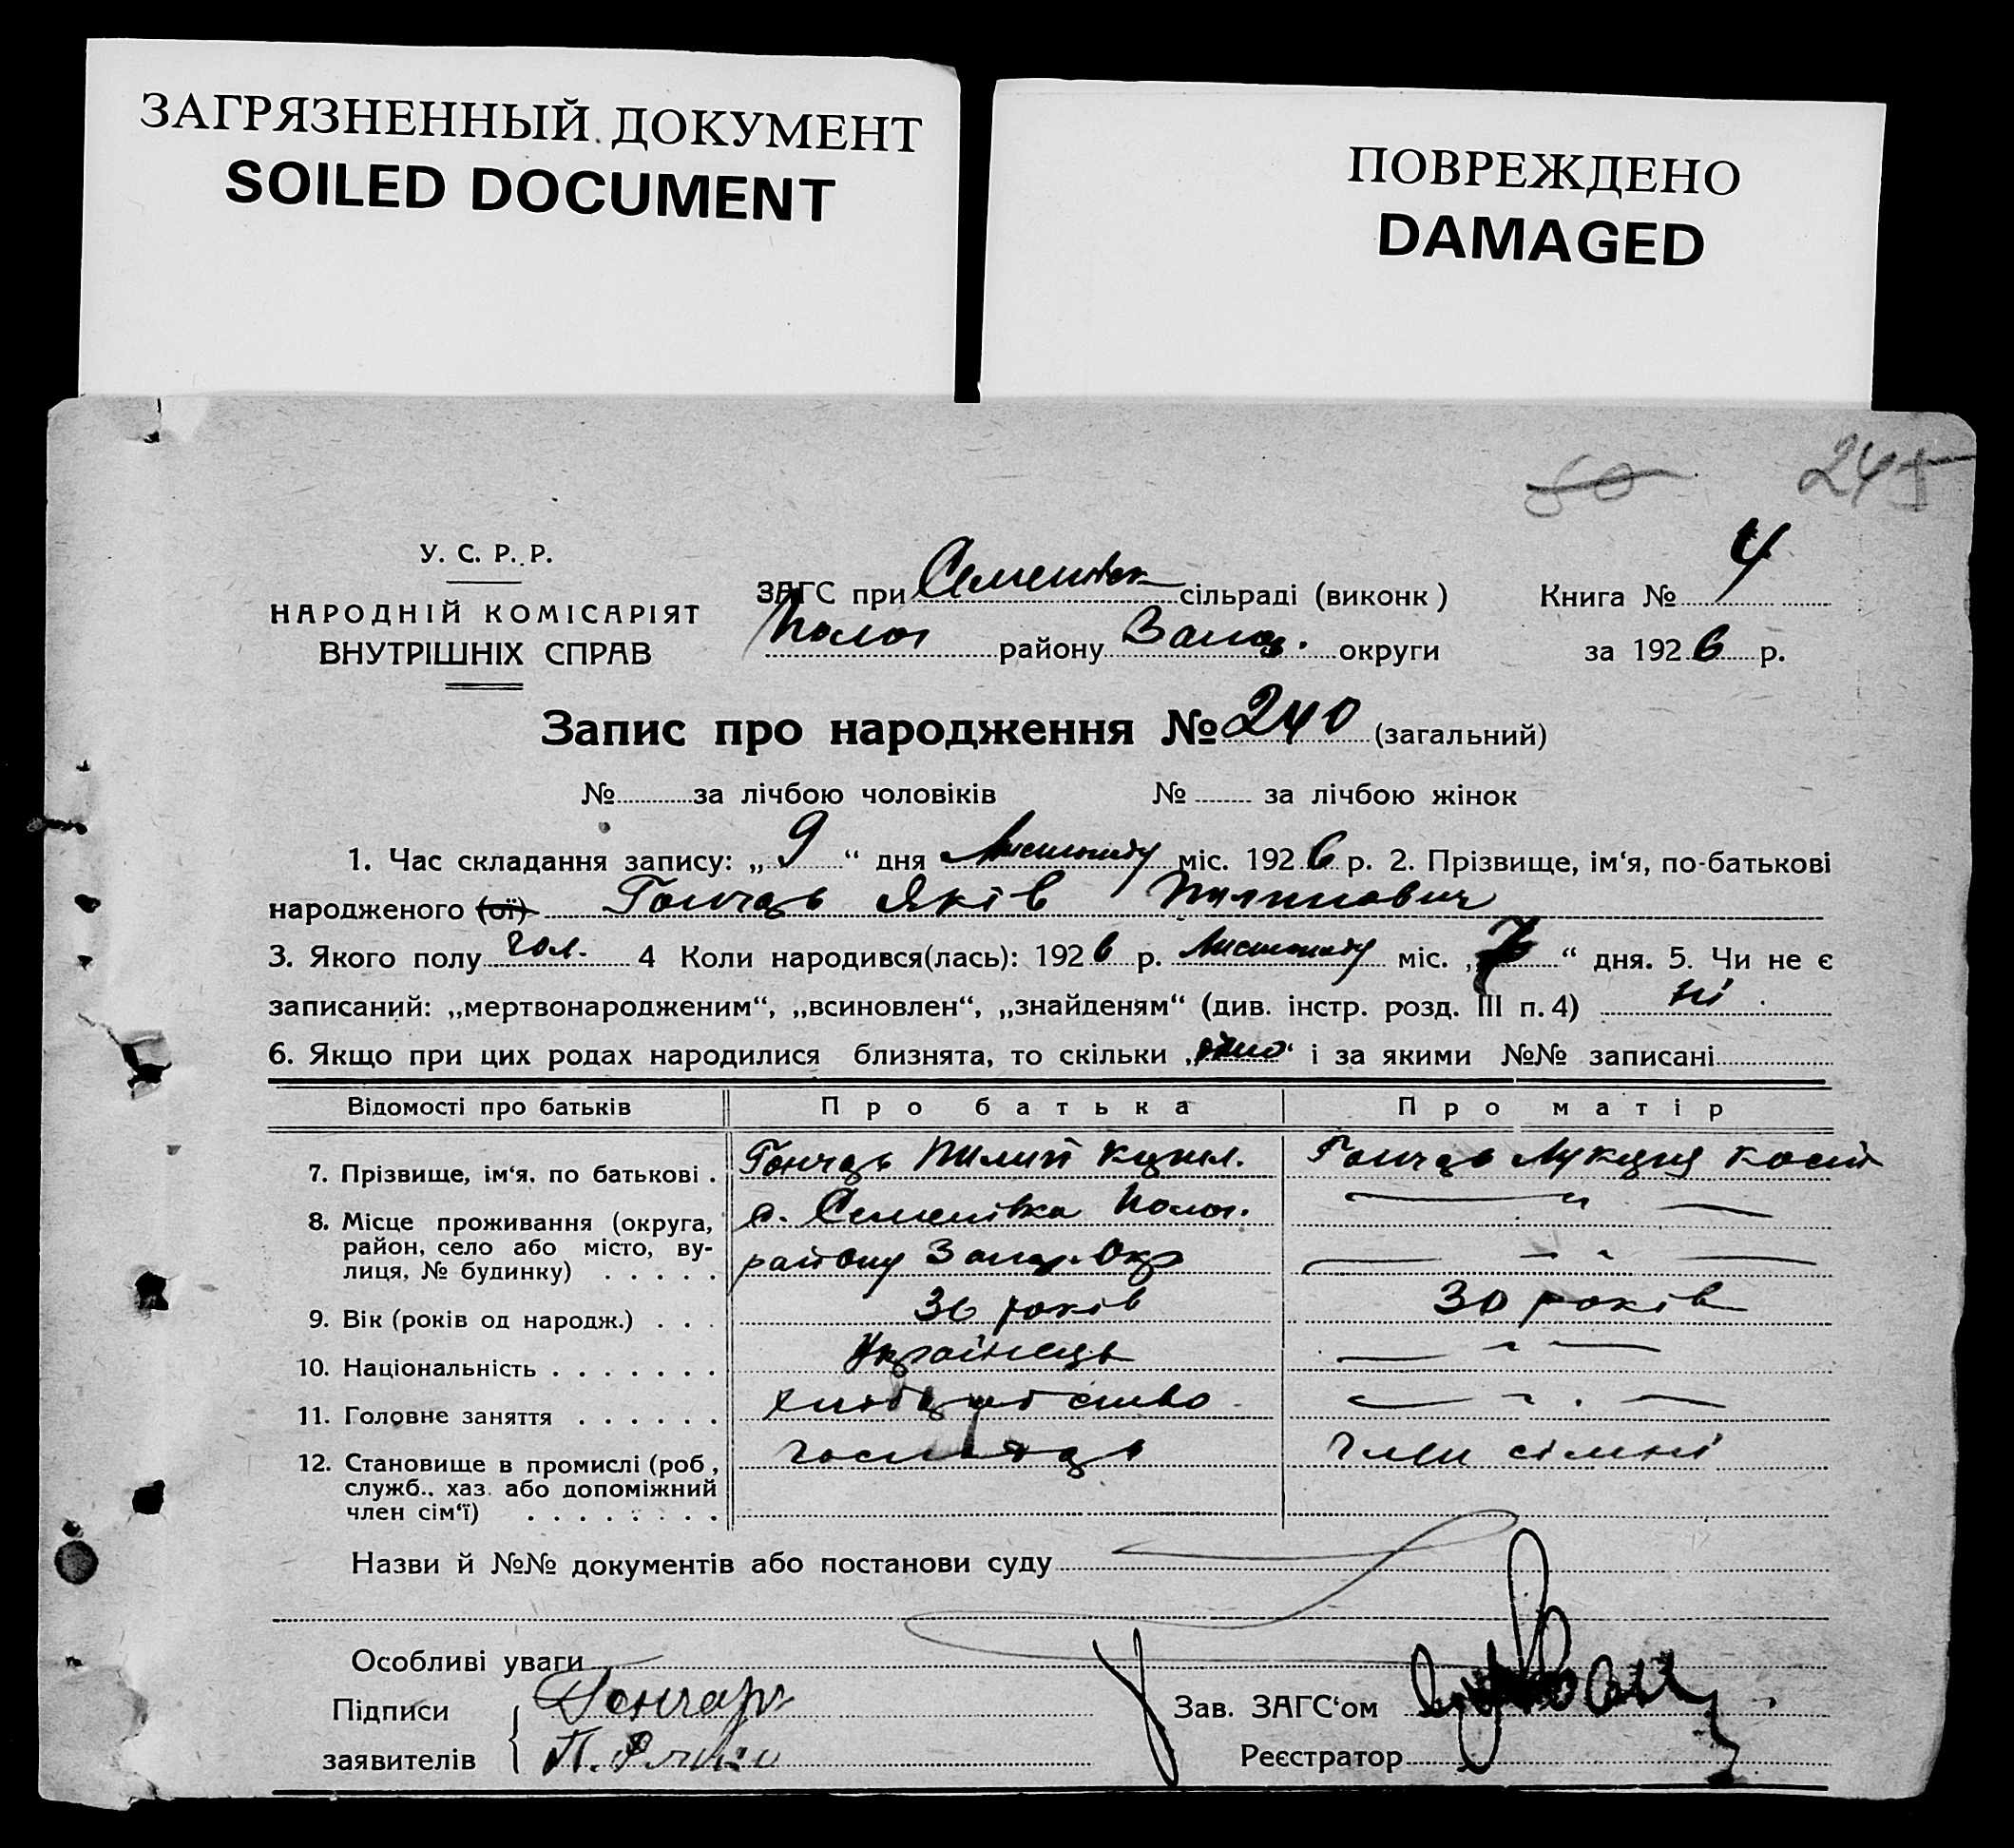 ЗАГРЯЗНЕННЫЙ ДОКУМЕНТ
SOILED DOCUMENT
ПОВРЕЖДЕНО
DAMAGED
50 245
У. С. Р. Р.
НАРОДНІЙ КОМІСАРІЯТ
ВНУТРІШНІХ СПРАВ
ЗАГС при Семенівск сільраді (виконк)
Полог району Запор. округи
Книга № 4
за 1926 р.
Запис про народження № 240 (загальний)
№ за лічбою чоловіків № за лічбою жінок
1. Час складання запису: „9“ дня Листопаду міс. 1926 р. 2. Прізвище, ім‘я, по-батькові
народженого (ої) Гончарь Яків Пилипович
3. Якого полу чол. 4 Коли народився(лась): 1926 р. Листопаду міс. „7“ дня. 5. Чи не є
записаний: „мертвонародженим“, „всиновлен“, „знайденям“ (див. інстр. розд. III п. 4) ні
6. Якщо при цих родах народилися близнята, то скільки „одно“ і за якими №№ записані
Відомості про батьків Про батька Про матір
7. Прізвище, ім‘я, по батькові . Гончарь Пилип Гончарь Лукерія
8. Місце проживання (округа, с. Семенівка Полог. — „ —
район, село або місто, ву-
лиця, № будинку) . . . . . району Запор. Окр — „ —
9. Вік (років од народж.) . . . 36 років 30 років
10. Національність . . . . . . . Українець — „ —
11. Головне заняття . . . . . . хліборобство — „ —
12. Становище в промислі (роб, господарь член сімні
служб.. хаз. або допоміжний
член сім‘ї) . . . . . . . .
Назви й №№ документів або постанови суду
Особливі уваги
Підписи Гончарь
заявителів П.
Зав. ЗАГС‘ом
Реєстратор